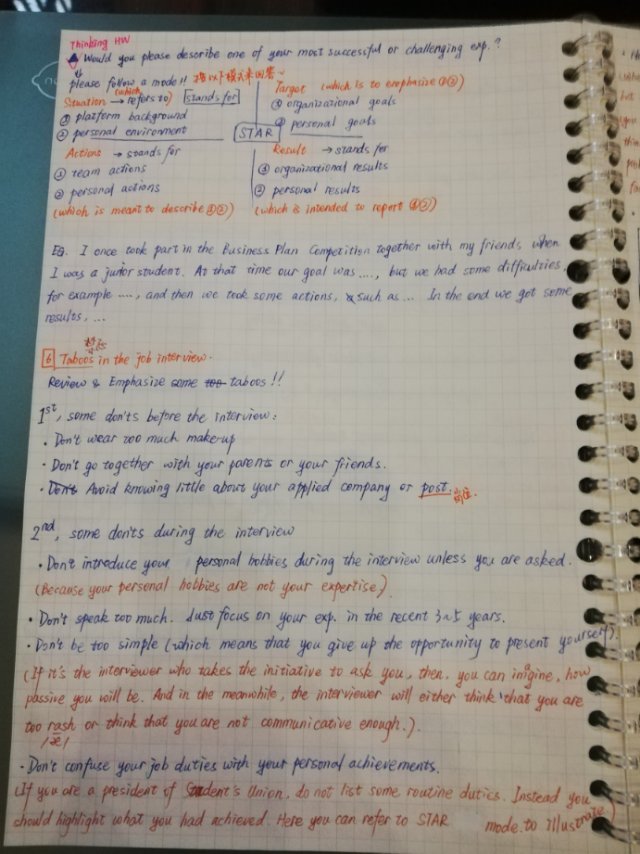 Thinking HW
▲ Would you please describe one of your most successful or challenging exp.?
↓ please follow a mode!! 按以下模式来回答~
Situation → (which refers to) stands for
① platform background
② personal environment
Target (which is to emphasize ①②)
① organizational goals
② personal goals
STAR
Actions → stands for
① team actions
② personal actions
(which is meant to describe ①②)
Result → stands for
① organizational results
② personal results
(which is intended to report ①②)
Eg. I once took part in the Business Plan Competition together with my friends when
I was a junior student. At that time our goal was ...., but we had some difficulties,
for example ...., and then we took some actions, such as ... In the end we got some
results, ...
6 Taboos in the job interview.
Review & Emphasize some too taboos!!
1st, some don'ts before the interview:
· Don't wear too much make-up
· Don't go together with your parents or your friends.
· Don't Avoid knowing little about your applied company or post. 岗位.
2nd, some don'ts during the interview
· Don't introduce your personal hobbies during the interview unless you are asked.
(Because your personal hobbies are not your expertise).
· Don't speak too much. Just focus on your exp. in the recent 3~5 years.
· Don't be too simple (which means that you give up the opportunity to present yourself).
(If it's the interviewer who takes the initiative to ask you, then, you can imagine, how
passive you will be. And in the meanwhile, the interviewer will either think that you are
too rash or think that you are not communicative enough.).
/æ/
· Don't confuse your job duties with your personal achievements.
(If you are a president of Student's Union, do not list some routine duties. Instead you
should highlight what you had achieved. Here you can refer to STAR mode to illustrate)